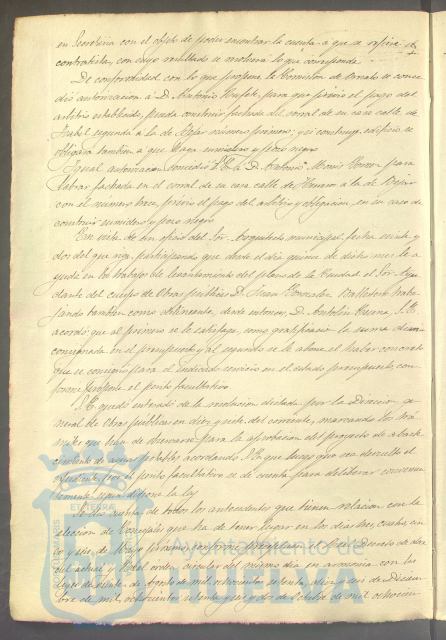 en Secretaria con el objeto de poder encontrar la cuenta a que se refiere el
contratista, con cuyo resultado se instruirá lo que corresponda.
De conformidad con lo que propone la Comision de Ornato se conce
dió autorizacion á D. Antonio para que previo el pago del
arbitrio establecido, pueda construir fachada del corral de su casa calle de
Isabel segunda á la de Bejar número primero, y si construye edificio se
obligará tambien á que haga sumidero y pozo negro
Igual autorizacion concedió S.E. á D. Antonio para
labrar fachada en el corral de su casa calle de á la de Bejar
con el número trece, previo el pago del arbitrio y obligacion, en su caso de
construir sumidero y pozo negro.
En vista de un oficio del Sor. Arquitecto municipal, fecha veinte y
dos del que rige, participando que desde el dia quince de dicho mes le a
yuda en los trabajos de levantamiento del plano de la Ciudad el Sor. Ayu
dante del cuerpo de Obras públicas D. Juan Gonzalez traba
jando tambien como delineante, desde entonces, D. Antolin S.E.
acordó que al primero se le satisfaga, como gratificacion la suma
consignada en el presupuesto y al segundo se le abone el haber concreto
que se consigna para el indicado servicio en el citado presupuesto, con
forme propone el perito facultativo
S.E. quedó enterado de la resolucion dictada por la Direccion ge
neral de Obras públicas en diez y siete del corriente, marcando los trá
mites que han de observarse para la aprobacion del proyecto de abaste
cimiento de aguas potables acordando S.E. que luego que sea devuelto el
expediente por el perito facultativo se dé cuenta para deliberar convenien
temente segun dispone la ley
Se dió cuenta de todos los antecedentes que tienen relacion con la
eleccion de Concejales que ha de tener lugar en los dias tres, cuatro, cin
co y seis de Mayo próximo, conforme Real Decreto de doce
del actual y Real orden circular del mismo dia en armonia con las
leyes de veinte de Agosto de mil ochocientos setenta, diez y seis de Diciem
bre de mil ochocientos setenta y seis y dos de Octubre de mil ochocien
ET TERRA
Ayuntamiento de